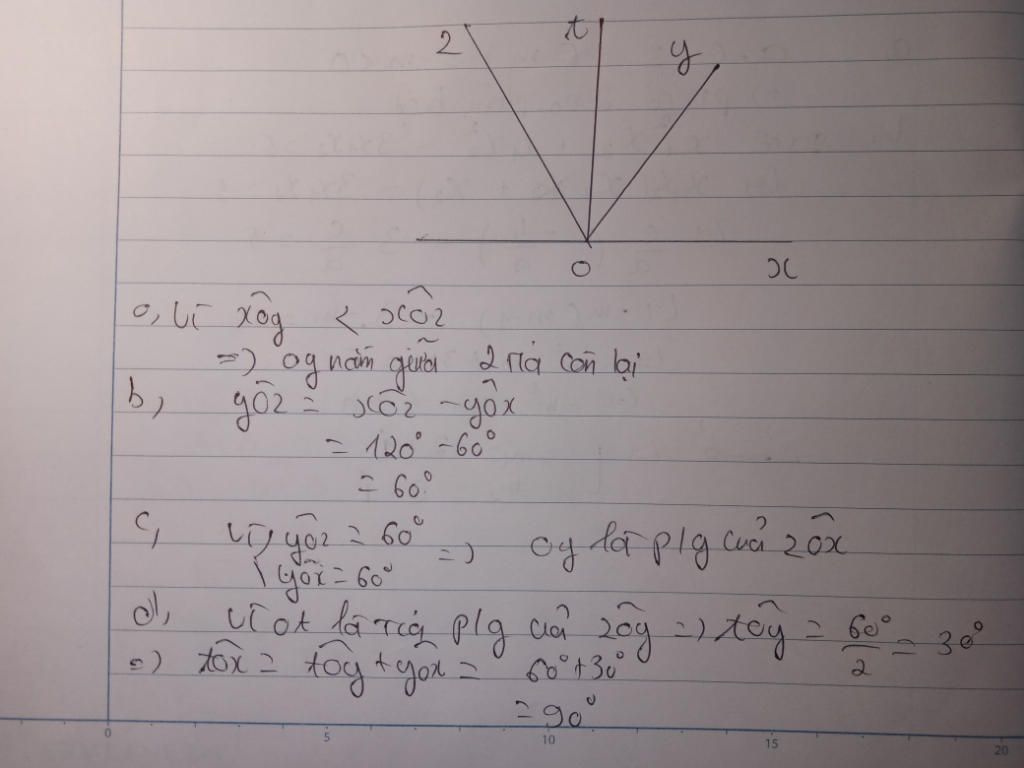 z t y
O x
a, Vì xÔy < xÔz
=> Oy nằm giữa 2 tia còn lại
b, yÔz = xÔz - yÔx
= 120° - 60°
= 60°
c, Vì yÔz = 60° => Oy là p/g của zÔx
yÔx = 60°
d, Vì Ot là tia p/g của zÔy => tÔy = 60°/2 = 30°
=> tÔx = tÔy + yÔx = 60° + 30°
= 90°
0 5 10 15 20